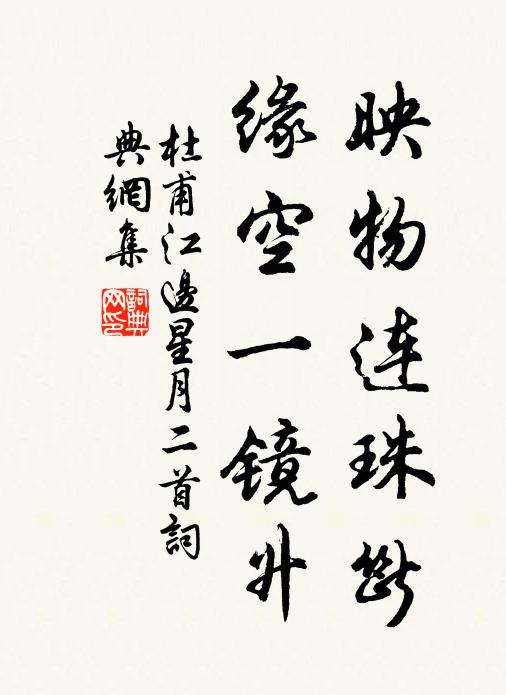 映物連珠斷
緣空一鏡升
杜甫江邊星月二首詞
典網集
詞典網印